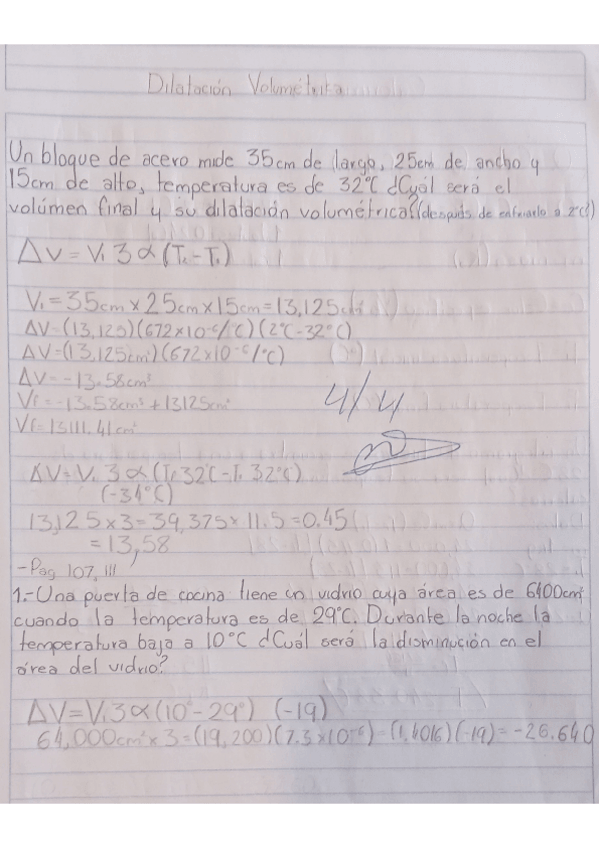 Dilatación Volumétrica
Un bloque de acero mide 35cm de largo, 25cm de ancho y
15cm de alto, temperatura es de 32°C ¿Cuál será el
volúmen final y su dilatación volumétrica? (después de enfriarlo a 2°C?)
ΔV = V₁ 3 α (T₂ - T₁)
V₁ = 35cm x 25cm x 15cm = 13,125
ΔV = (13,125)(672x10⁻⁶/°C)(2°C-32°C)
ΔV = (13,125cm³)(672x10⁻⁶/°C)
ΔV = -13.58cm³
Vf = -13.58cm³ + 13125cm³
Vf = 13111.41cm³
4/4
ΔV = V₁ 3 α (T₂ 32°C - T₁ 32°C)
(-34°C)
13,125 x 3 = 39,375 x 11.5 = 0.45
= 13,58
-Pag 107, 111
1.- Una puerta de cocina tiene un vidrio cuya área es de 6400cm²
cuando la temperatura es de 29°C. Durante la noche la
temperatura baja a 10°C ¿Cuál será la disminución en el
área del vidrio?
ΔV = V₁ 3 α (10° - 29°) (-19)
64,000cm² x 3 = (19,200)(7.3x10⁻⁶) = (1.4016)(-19) = -26.640